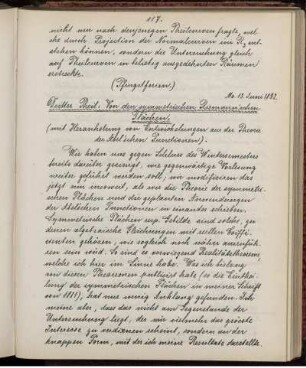 117.
nicht um nach denjenigen Thetanullen fragte, wel-
che durch Projection der Normalcurven im R₃ ent-
stehen können, sondern die Untersuchung gleich
auf in beliebig ausgedehnten Räumen
erstreckte.
(Pfingstferien)
Mo. 13 Juni 1892.
Dritter Theil. Von den symmetrischen Riemann'schen
Flächen.
(mit Heranholung von Entwickelungen aus der Theorie
der Abel'schen Functionen).
Wir haben uns gegen Schluss des Wintersemesters
bereits darüber geeinigt, wie gegenwärtige Vorlesung
weiter geführt werden soll; wir modificiren das
jetzt nur insoweit, als wir die Theorie der symmetri-
schen Flächen und die geplanten Anwendungen
der Abelschen Functionen in einander schieben.
Symmetrische Flächen resp. Gebilde sind solche, zu
denen algebraische Gleichungen mit reellen Coeffi-
cienten gehören, wie sogleich noch näher auszufüh-
ren sein wird. Es sind vorwiegend Realitätstheoreme,
welche ich hier im Sinne habe. Was ich bislang
von diesen Theoremen publicirt habe (so die Einthei-
lung der symmetrischen Flächen in meiner Schrift
von 1881), hat nur wenig Anklang gefunden. Ich
meine aber, dass das nicht am Gegenstande der
Untersuchung liegt, der mir vielmehr das grösste
Interesse zu verdienen scheint, sondern an der
knappen Form, mit der ich meine Resultate darstellte.